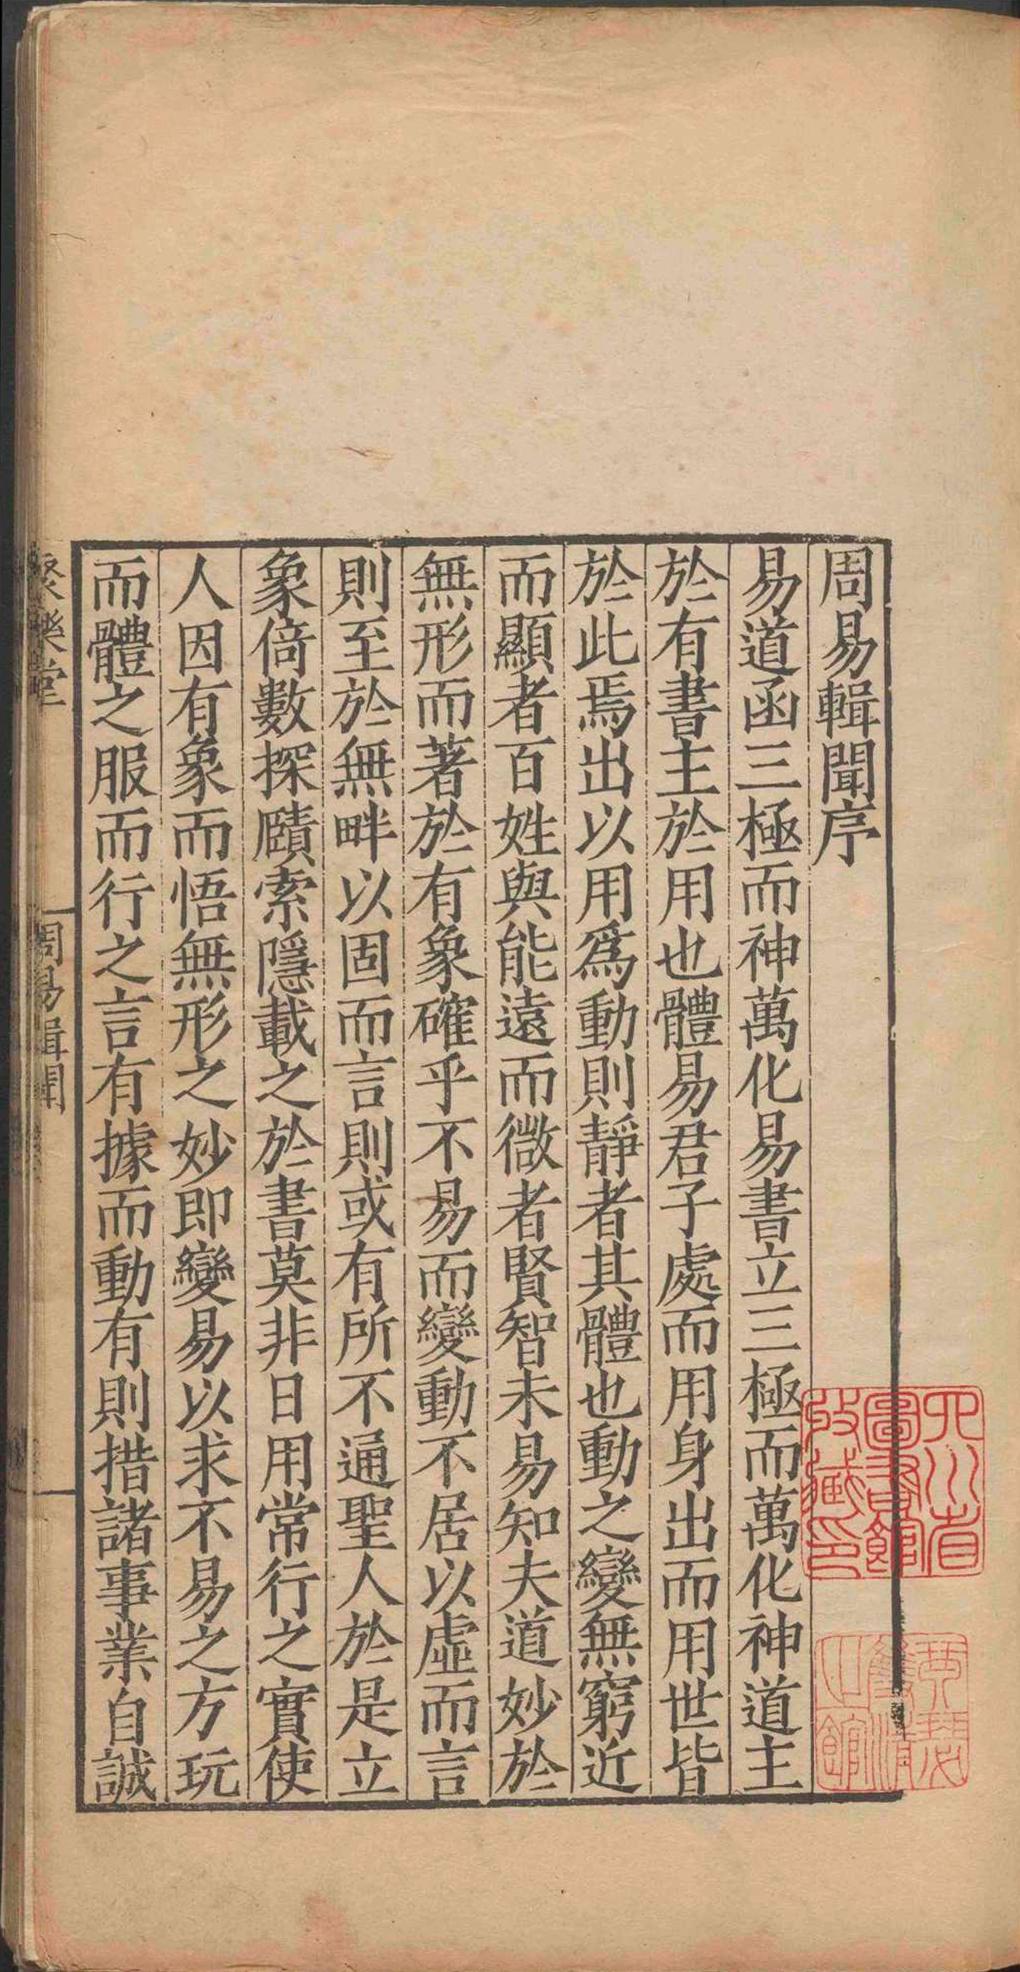 周易輯聞序
易道函三極而神萬化易書立三極而萬化神道主
於有書主於用也體易君子處而用身出而用世皆
於此焉出以用爲動則靜者其體也動之變無窮近
而顯者百姓與能遠而微者賢智未易知夫道妙於
無形而著於有象確乎不易而變動不居以虛而言
則至於無畔以固而言則或有所不通聖人於是立
象倚數探賾索隱載之於書莫非日用常行之實使
人因有象而悟無形之妙即變易以求不易之方玩
而體之服而行之言有據而動有則措諸事業自誠
聚樂堂
周易輯聞
四川省
圖書館
收藏印